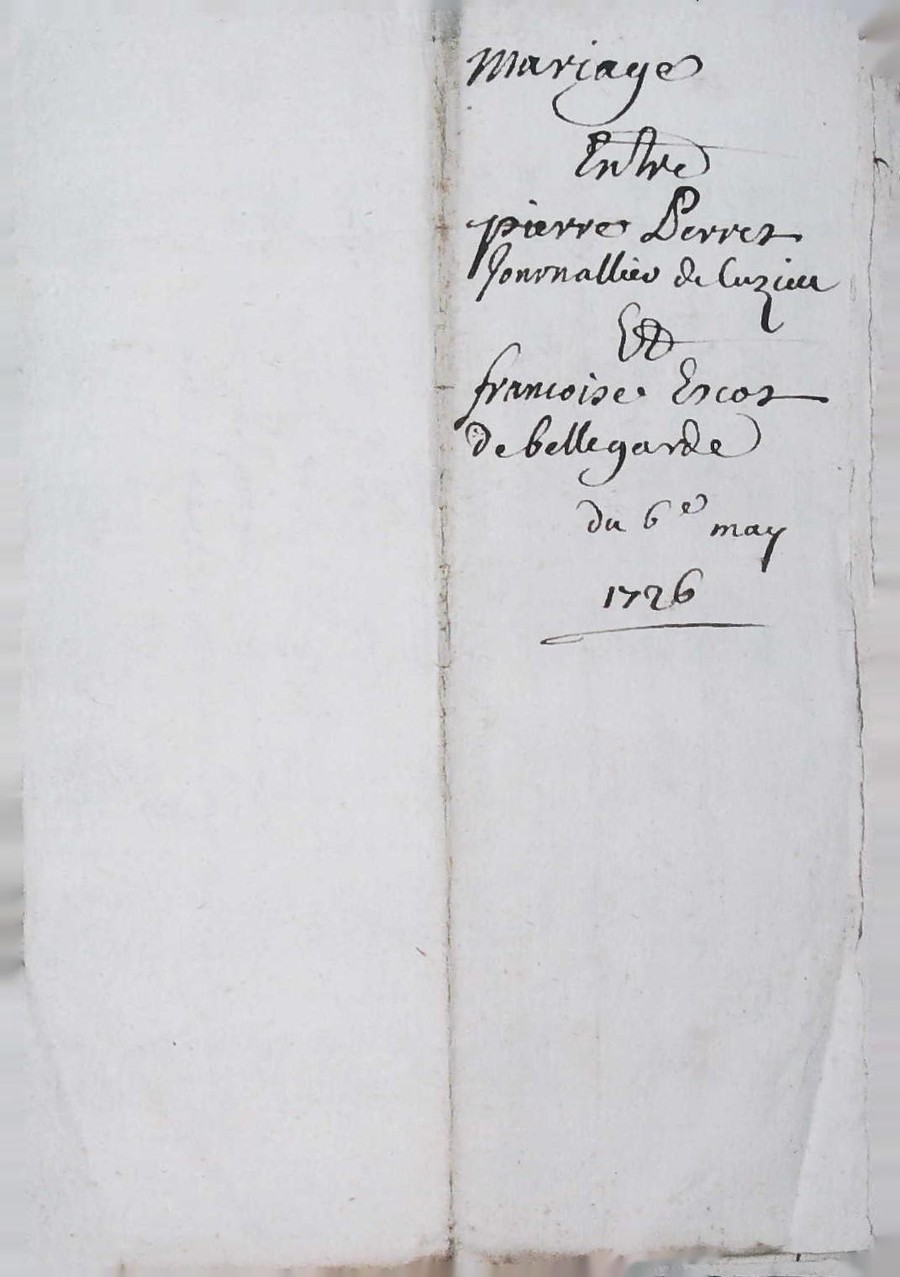 Mariage
Entre
pierre Perret
Journallier de Cuzieu
Et
francoise Escot
de bellegarde
du 6e may
1726